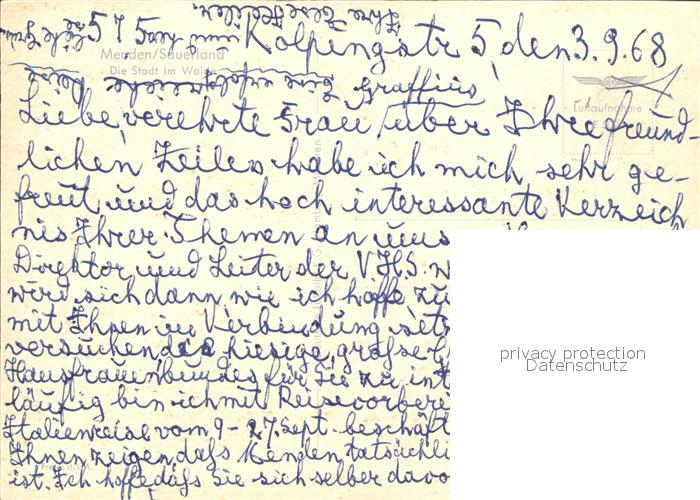 Menden/Sauerland
Die Stadt im Walde
Luftaufnahme
Kolpingstr 5, den 3.9.68
Graffius
Liebe, verehrte Frau, über Ihre freund-
lichen Zeilen habe ich mich sehr ge-
freut, und das hoch interessante Verzeich
nis Ihrer Themen an uns
Direktor und Leiter der V.H.S. w
wird sich dann wie ich hoffe zu
mit Ihnen in Verbindung setz
versuchen, das hiesige, grosse
Hausfrauenbundes für Sie zu int
läufig bin ich mit Reisevorberei
Italienreise vom 9-27. Sept. beschäft
Ihnen zeigen, dass Menden tatsächli
ist. Ich hoffe, dass Sie sich selber davo
eine erfolgreiche Reise
Ihre Hedi
privacy protection
Datenschutz